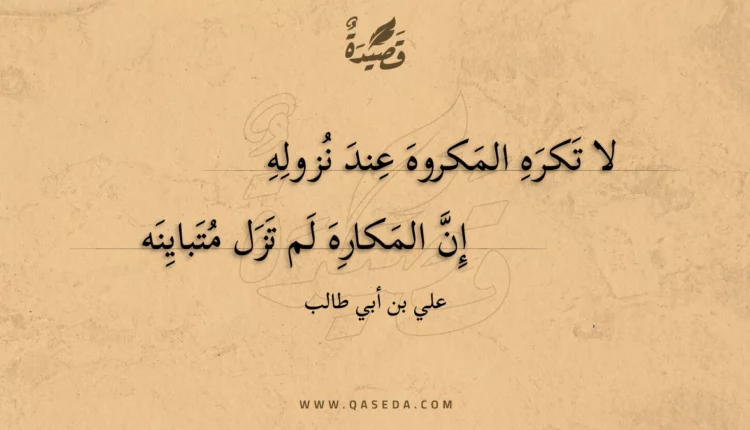 قَصِيدَةٌ
لا تَكرَهِ المَكروهَ عِندَ نُزولِهِ
إِنَّ المَكارِهَ لَم تَزَل مُتَبايِنَه
علي بن أبي طالب
WWW.QASEDA.COM